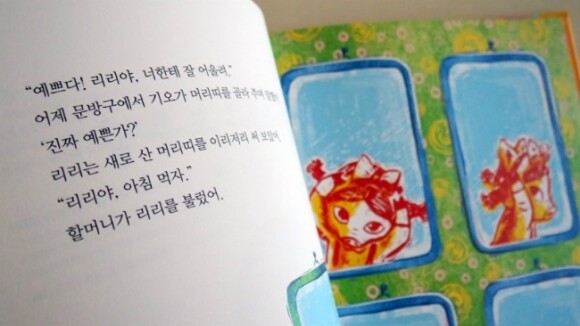 “예쁘다! 리리야, 너한테 잘 어울려.”
어제 문방구에서 기오가 머리띠를 골라 주며
‘진짜 예쁜가?’
리리는 새로 산 머리띠를 이리저리 써 보았어.
“리리야, 아침 먹자.”
할머니가 리리를 불렀어.